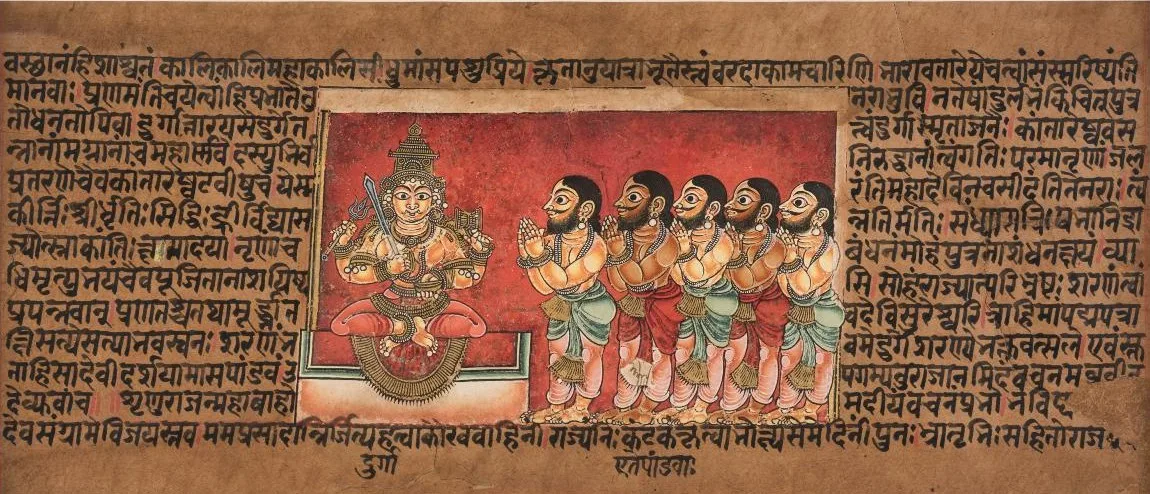 वस्छानंहिशाश्वतं कालिकालिमहाकालिसीधुमांसपशुप्रिये कृतानुयात्राभूतैस्त्वंवरदाकामचारिणि भारावतारेयेचत्वांसंस्मरिष्यंति
मानवाः प्रणमंतिचयेत्वांहिप्रभातेतु नराभुवि नतेषांदुर्लभंकिंचित्पुत्र
तोधनतोपिवा दुर्गात्तारयसेदुर्गेत त्त्वंदुर्गास्मृताजनैः कांतारेष्ववस
न्नानांमग्नानांचमहार्णवे दस्युभिर्वा निरुद्धानांत्वंगतिः परमानृणां जल
प्रतरणेचैवकांतारेष्वटवीषुच येस्म रंतिमहादेविनचसीदंतितेनराः त्वं
कीर्त्तिःश्रीर्धृतिःसिद्धिःह्रीर्विद्यासं न्नतिर्मतिः संध्यारात्रिःप्रभानिद्रा
ज्योत्स्नाकांतिःक्षमादया नृणांच बंधनंमोहंपुत्रनाशंधनक्षयं व्या
धिमृत्युभयंचैवपूजितानाशयिष्य सि सोहंराज्यात्परिभ्रष्टः शरणंत्वां
प्रपन्नवान् प्रणतश्चतथामूर्द्ध्नात वदेविसुरेश्वरि त्राहिमांपद्मपत्रा
क्षिसत्येसत्याभवस्वनः शरणंभ वमेदुर्गेशरण्येभक्तवत्सले एवंस्तु
ताहिसादेवीदर्शयामासपांडवं उ पगम्यतुराजानमिदंवचनमब्रवीत्
देव्युवाच शृणुराजन्महाबाहो मदीयंवचनंप्रभो भविष्य
देवसंग्रामेविजयस्तव ममप्रसादान्निर्जित्यहत्वाकौरववाहिनीं राज्यंनिःकंटकंकृत्वाभोक्ष्यसेमेदिनींपुनः भ्रातृभिःसहितोराज
दुर्गा एतेपांडवाः